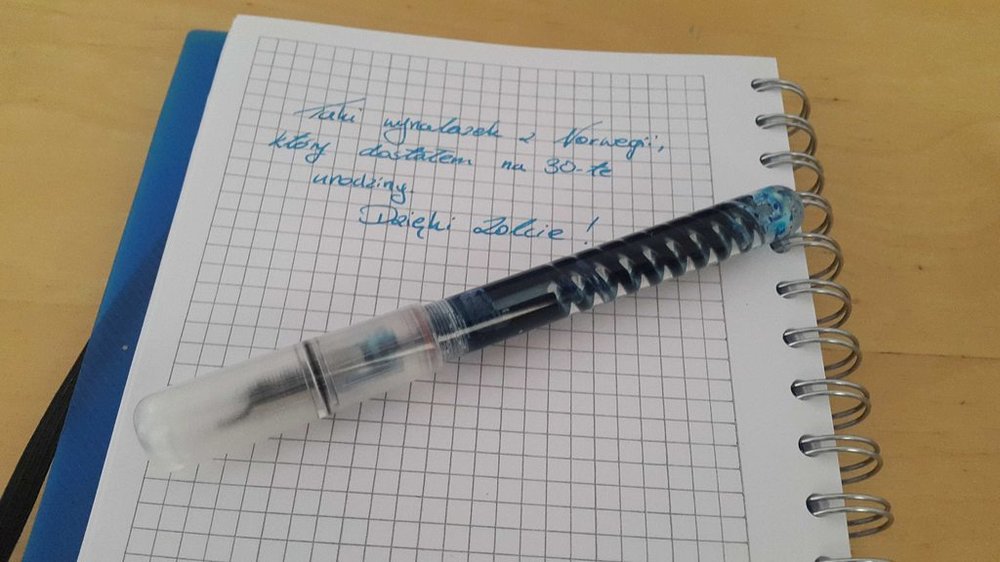 Taki wynalazek z Norwegii,
który dostałem na 30-te
urodziny.
Dzięki Zolcie!